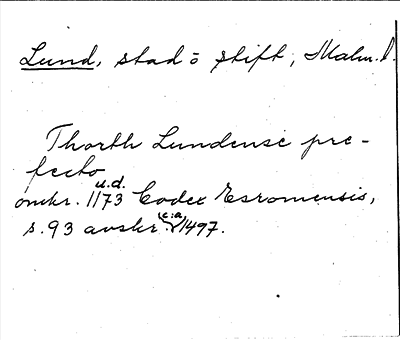 Lund, stad o stift, Malm. l.
Thorth Lundense pre-
fecto
u.d.
omkr. 1173 Codex Esromensis,
c:a
s. 93 avskr. 1497.